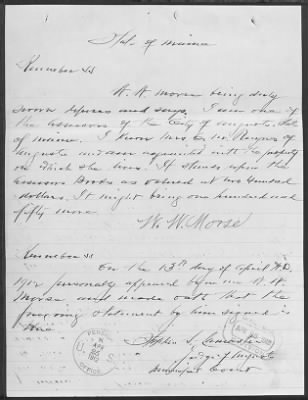 State of Maine
Kennebec ss
W. W. Morse being duly
sworn deposes and says, I am one of
the assessors of the City of Augusta, State
of Maine. I know Mrs
Augusta and am acquainted with the property
on which she lives. It stands upon the
assessors Books as valued at two hundred
dollars. It might bring one hundred and
fifty more
W. W. Morse
Kennebec ss
On the 13th day of April A.D.
1912 personally appeared before me W. W.
Morse and made oath that the
foregoing statement by him signed is
true
Judge of Augusta
Municipal Court
PENSION
U. S.
APR
1912
OFFICE